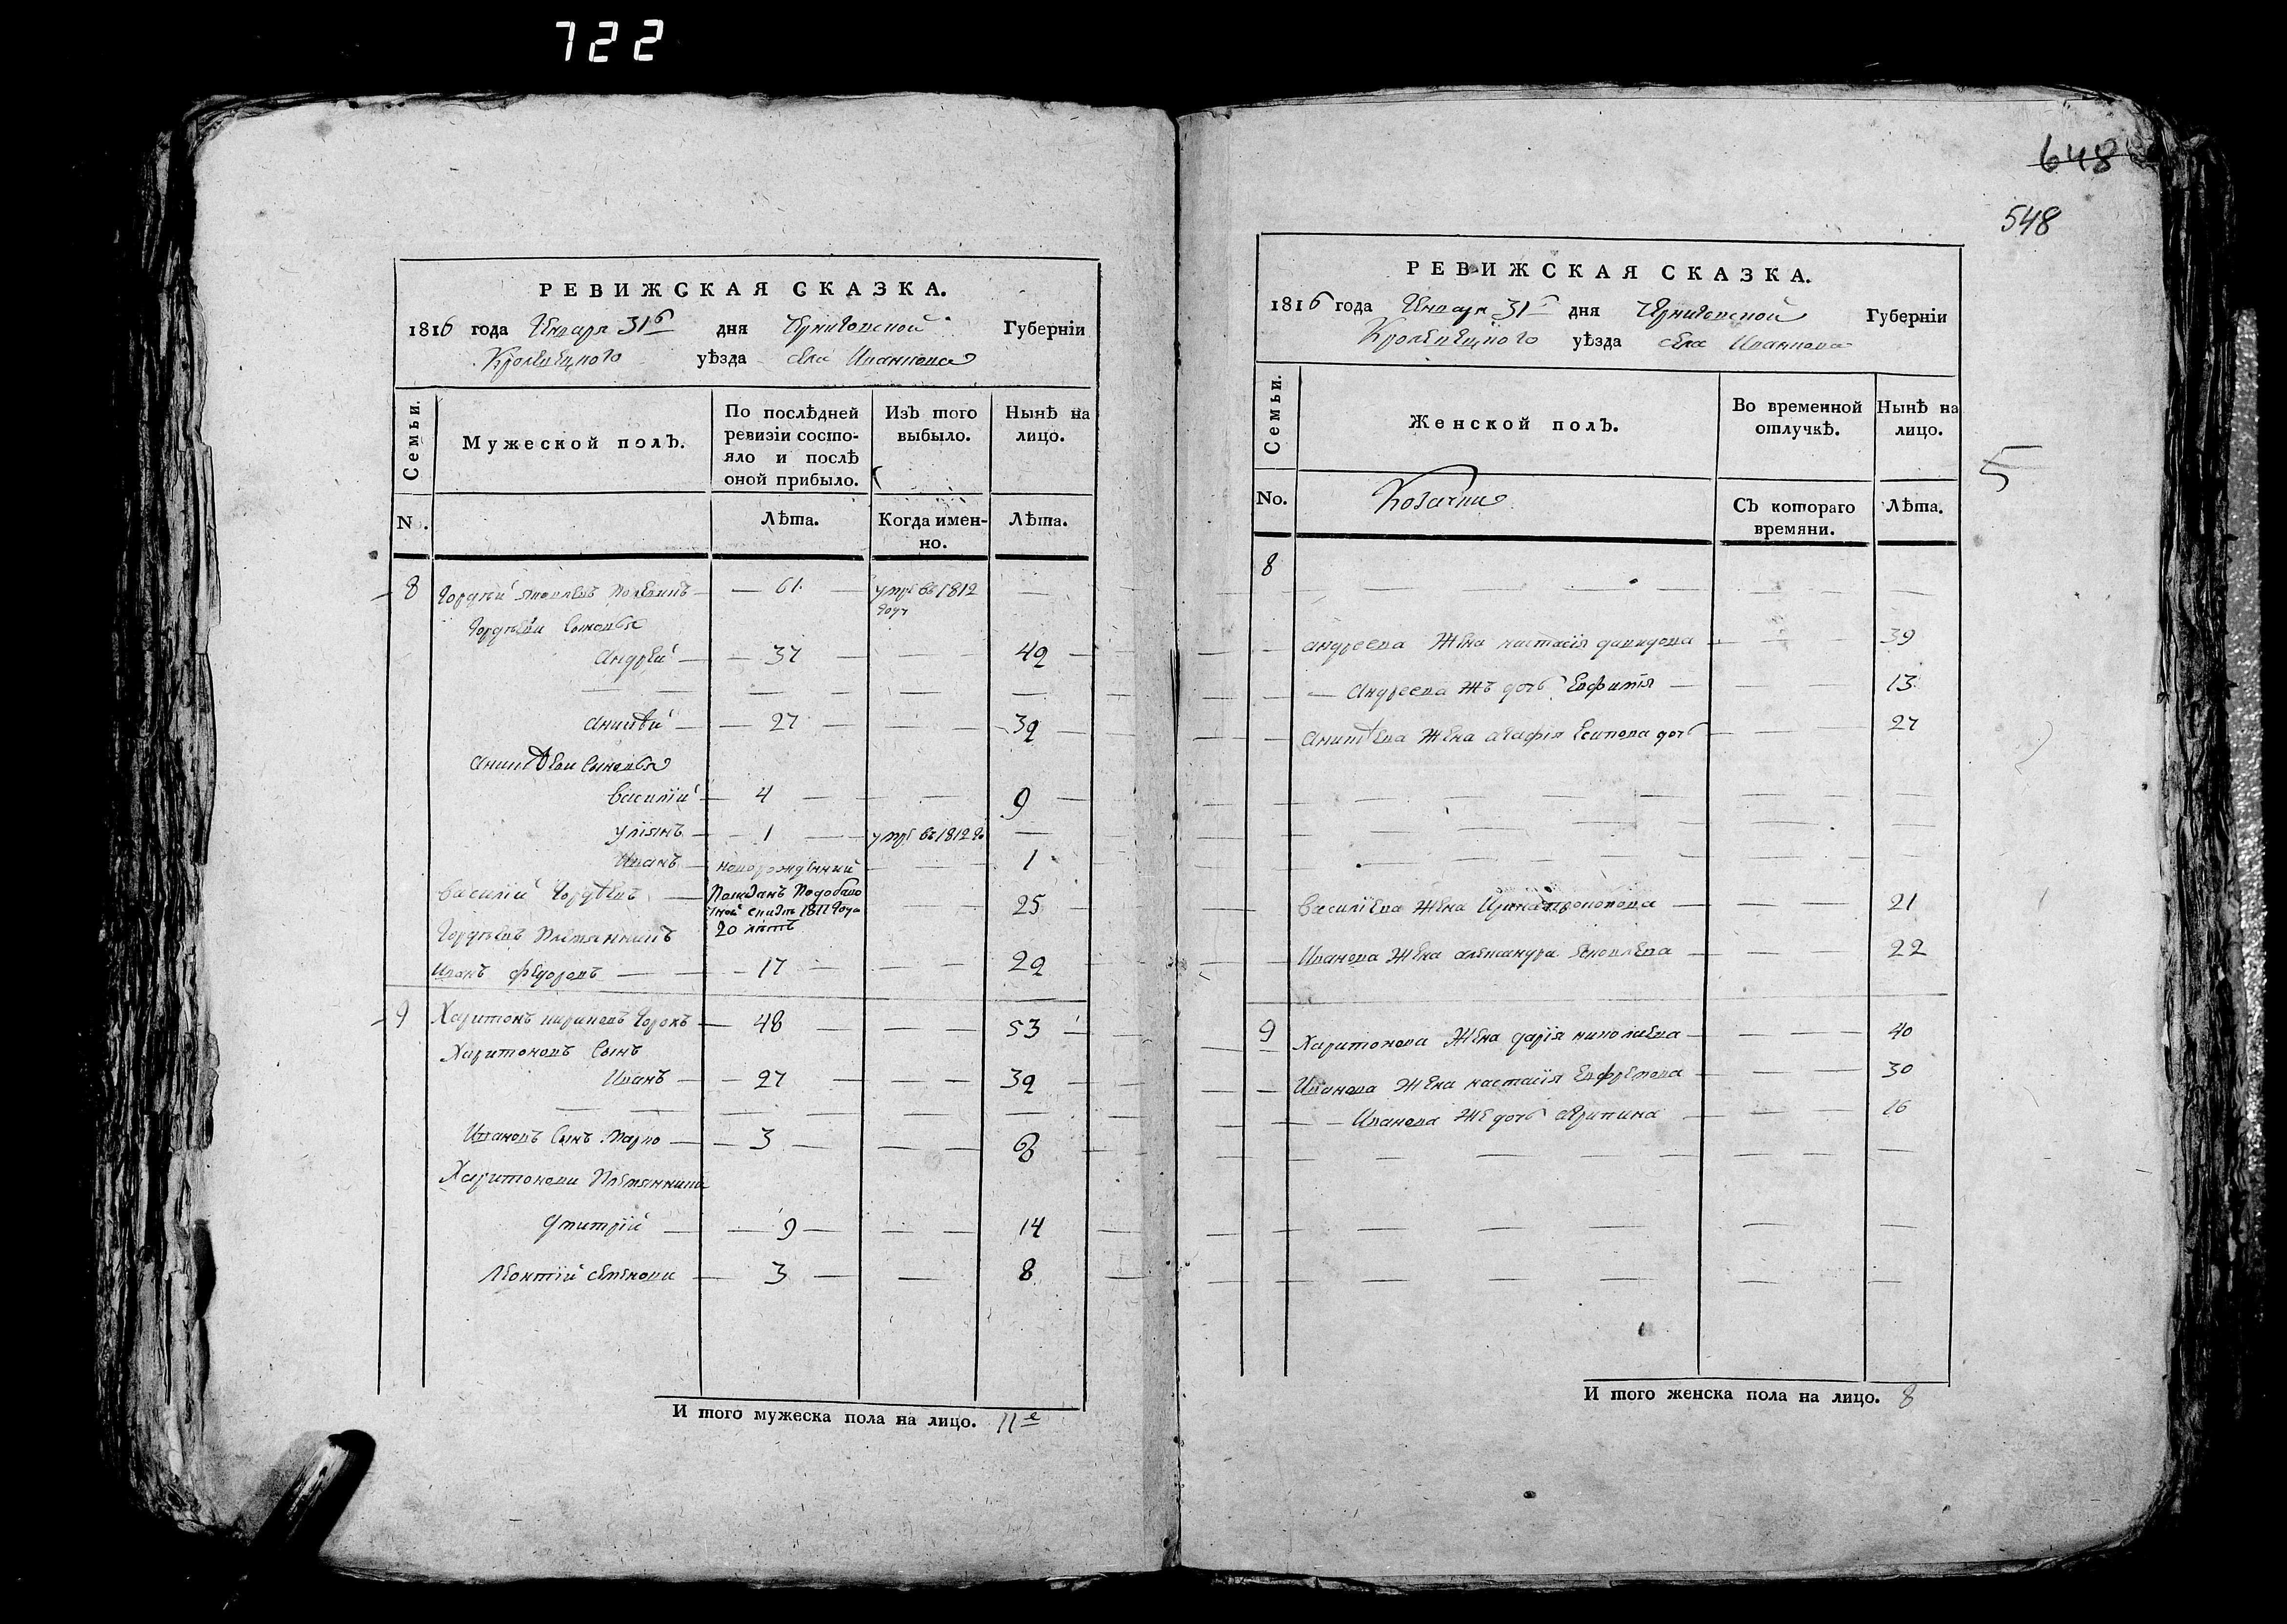 722
РЕВИЖСКАЯ СКАЗКА.
1816 года Генваря 31 дня Черниговской Губерніи
Кролевецкого уѣзда села Иванкова
Семьи.
Мужеской полъ.
По послѣдней ревизіи состо-
яло и послѣ
оной прибыло.
Изъ того
выбыло.
Нынѣ на
лицо.
No.
Лѣта.
Когда имен-
но.
Лѣта.
8 Гордѣй Яковлевъ — 61 — умре въ 1812 — 
году
Гордѣеви Сыновья
Андрей — 37 — — — 42
— — — — — —
Аникѣй — 27 — — — 32
Аникѣеви Сыновья
Василій — 4 — — — 9
Уліянъ — 1 — умре въ 1812 го —
Иванъ новорожденний — — 1
Василій Гордѣевъ — 
1811 года
20 лѣтъ — — 25
Гордѣевъ Племянникъ
Иванъ Федоровъ — 17 — — — 22
9 Харитонъ Горокъ — 48 — — — 53
Харитоновъ Сынъ
Иванъ — 27 — — — 32
— — — — — —
Ивановъ Сынъ Марко — 3 — — — 8
Харитонови Племянники
Дмитрій — 9 — — — 14
Леонтій Семенови — 3 — — 8
И того мужеска пола на лицо. 11
648
548
5
РЕВИЖСКАЯ СКАЗКА.
1816 года Генваря 31 дня Черниговской Губерніи
Кролевецкого уѣзда села Иванкова
Семьи.
Женской полъ.
Во временной
отлучкѣ.
Нынѣ на
лицо.
No.
Козачки
Съ котораго
времяни.
Лѣта.
8
Андреева Жена Настасія Давидова — — — 39
— Андреева Жъ дочь Евфимія — — — 13
Аникѣева Жена Агафія Есипова дочь — — — 27
Василіева Жена Ирина — — — 21
Иванова Жена Александра Яковлева — — — 22
9 Харитонова Жена Дарія Николаева — — — 40
Иванова Жена Настасія Евфремова — — — 30
— Иванова Же дочь Агрипина — — — 16
И того женска пола на лицо. 8